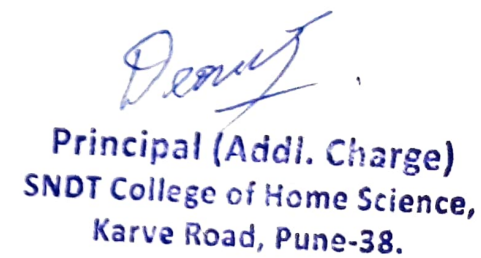 Principal (Addl. Charge)
SNDT College of Home Science,
Karve Road, Pune-38.